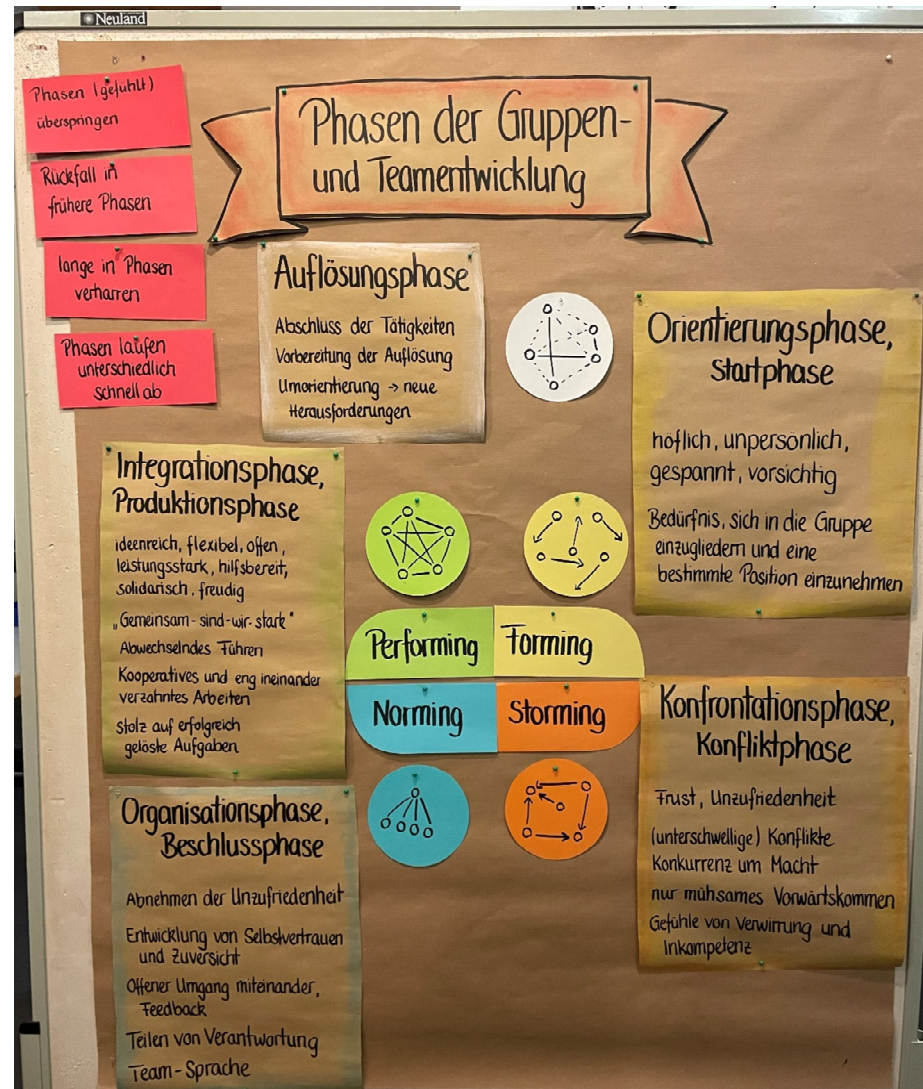 Neuland
Phasen (gefühlt)
überspringen
Rückfall in
frühere Phasen
lange in Phasen
verharren
Phasen laufen
unterschiedlich
schnell ab
Phasen der Gruppen-
und Teamentwicklung
Auflösungsphase
Abschluss der Tätigkeiten
Vorbereitung der Auflösung
Umorientierung → neue
Herausforderungen
Orientierungsphase,
Startphase
höflich, unpersönlich,
gespannt, vorsichtig
Bedürfnis, sich in die Gruppe
einzugliedern und eine
bestimmte Position einzunehmen
Integrationsphase,
Produktionsphase
ideenreich, flexibel, offen,
leistungsstark, hilfsbereit,
solidarisch, freudig
„Gemeinsam-sind-wir-stark"
Abwechselndes Führen
Kooperatives und eng ineinander
verzahntes Arbeiten
Stolz auf erfolgreich
gelöste Aufgaben
Performing
Forming
Norming
Storming
Konfrontationsphase,
Konfliktphase
Frust, Unzufriedenheit
(unterschwellige) Konflikte
Konkurrenz um Macht
nur mühsames Vorwärtskommen
Gefühle von Verwirrung und
Inkompetenz
Organisationsphase,
Beschlussphase
Abnehmen der Unzufriedenheit
Entwicklung von Selbstvertrauen
und Zuversicht
Offener Umgang miteinander,
Feedback
Teilen von Verantwortung
Team-Sprache